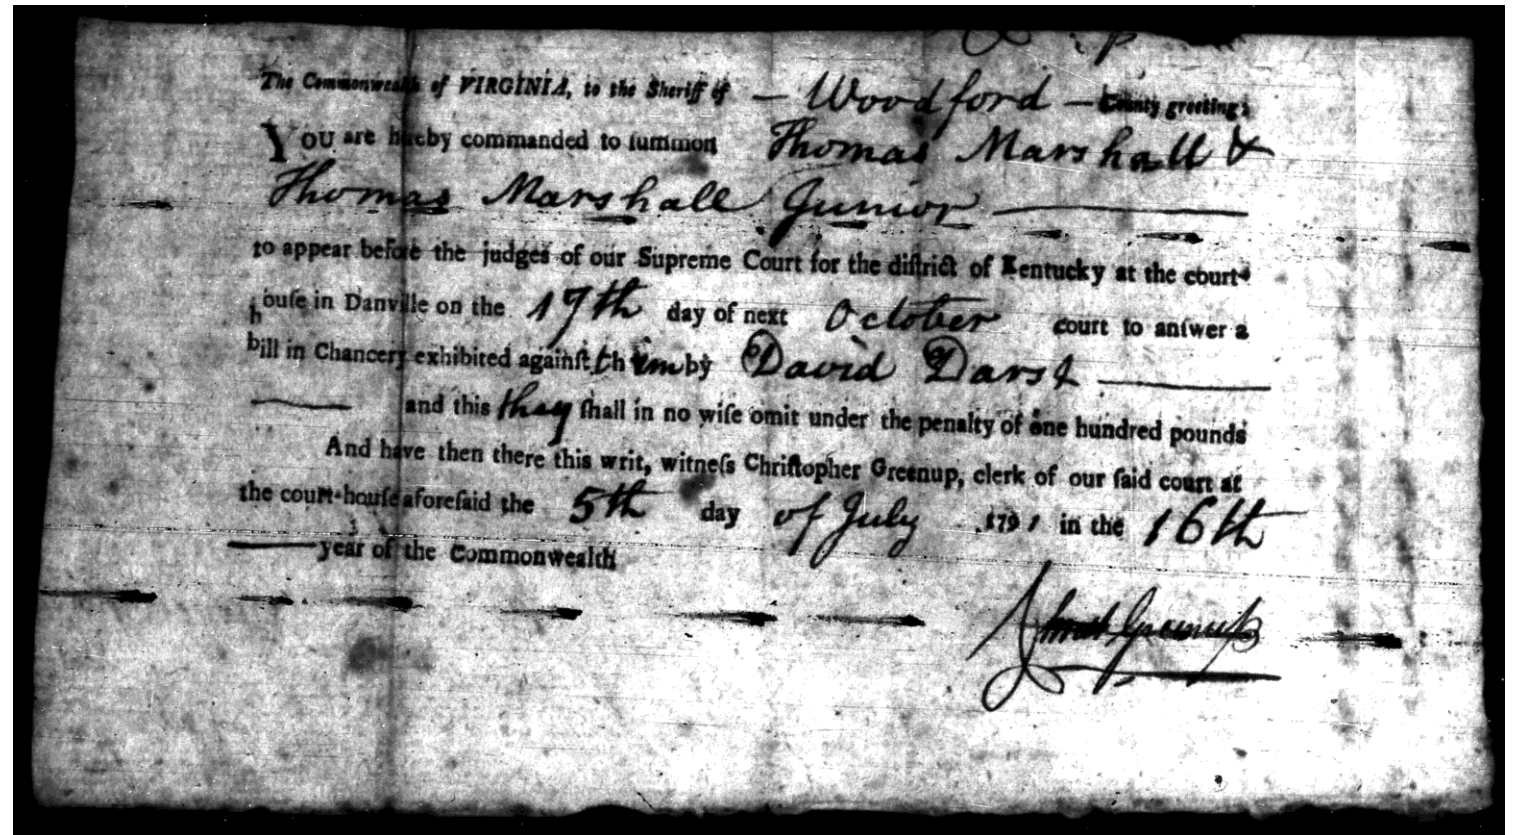 The Commonwealth of VIRGINIA, to the Sheriff of — Woodford — County greeting:
YOU are hereby commanded to ſummon Thomas Marshall &
Thomas Marshall Junior
to appear before the judges of our Supreme Court for the diſtrict of Kentucky at the court-
houſe in Danville on the 17th day of next October court to anſwer a
bill in Chancery exhibited againſt them by David Darst
and this they ſhall in no wiſe omit under the penalty of one hundred pounds
And have then there this writ, witneſs Chriſtopher Greenup, clerk of our ſaid court at
the court-houſe aforeſaid the 5th day of July 1791 in the 16th
year of the Commonwealth
Greenup